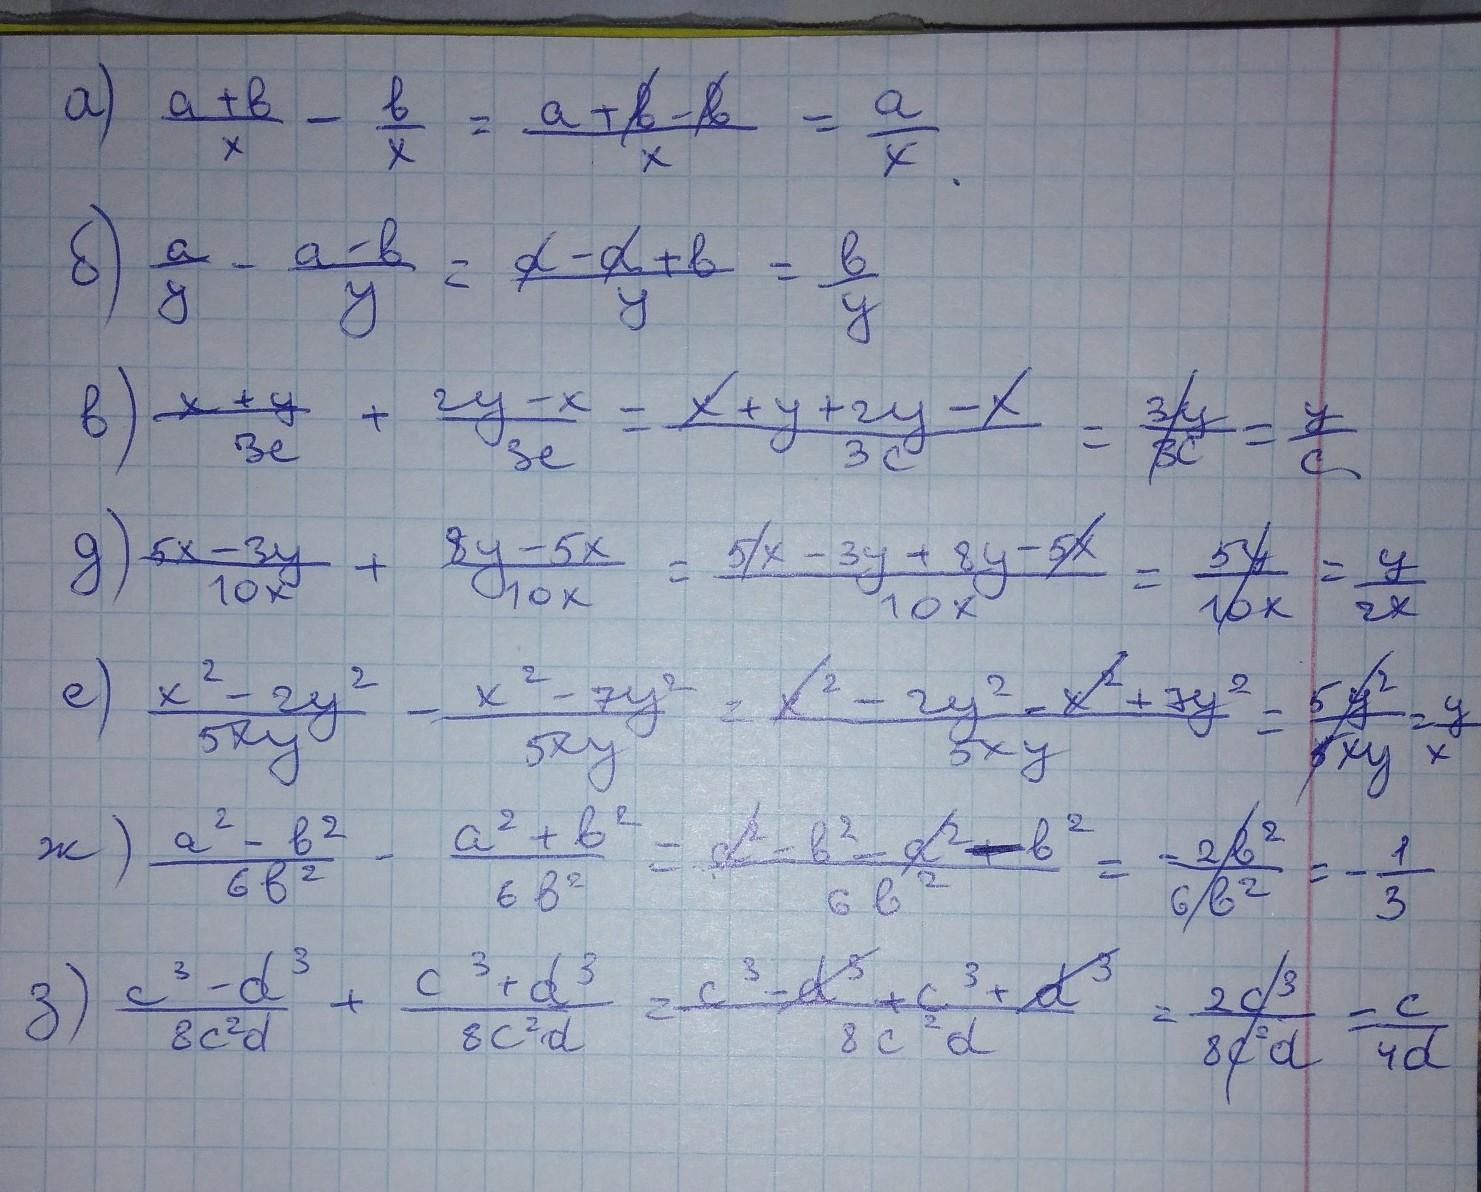 а) (a+b)/x - b/x = (a+b-b)/x = a/x.
б) a/y - (a-b)/y = (a-a+b)/y = b/y
в) (x+y)/3c + (2y-x)/3c = (x+y+2y-x)/3c = 3y/3c = y/c
д) (5x-3y)/10x + (8y-5x)/10x = (5x-3y+8y-5x)/10x = 5y/10x = y/2x
е) (x²-2y²)/5xy - (x²-7y²)/5xy = (x²-2y²-x²+7y²)/5xy = 5y²/5xy = y/x
ж) (a²-b²)/6b² - (a²+b²)/6b² = (a²-b²-a²-b²)/6b² = -2b²/6b² = -1/3
з) (c³-d³)/8c²d + (c³+d³)/8c²d = (c³-d³+c³+d³)/8c²d = 2c³/8c²d = c/4d